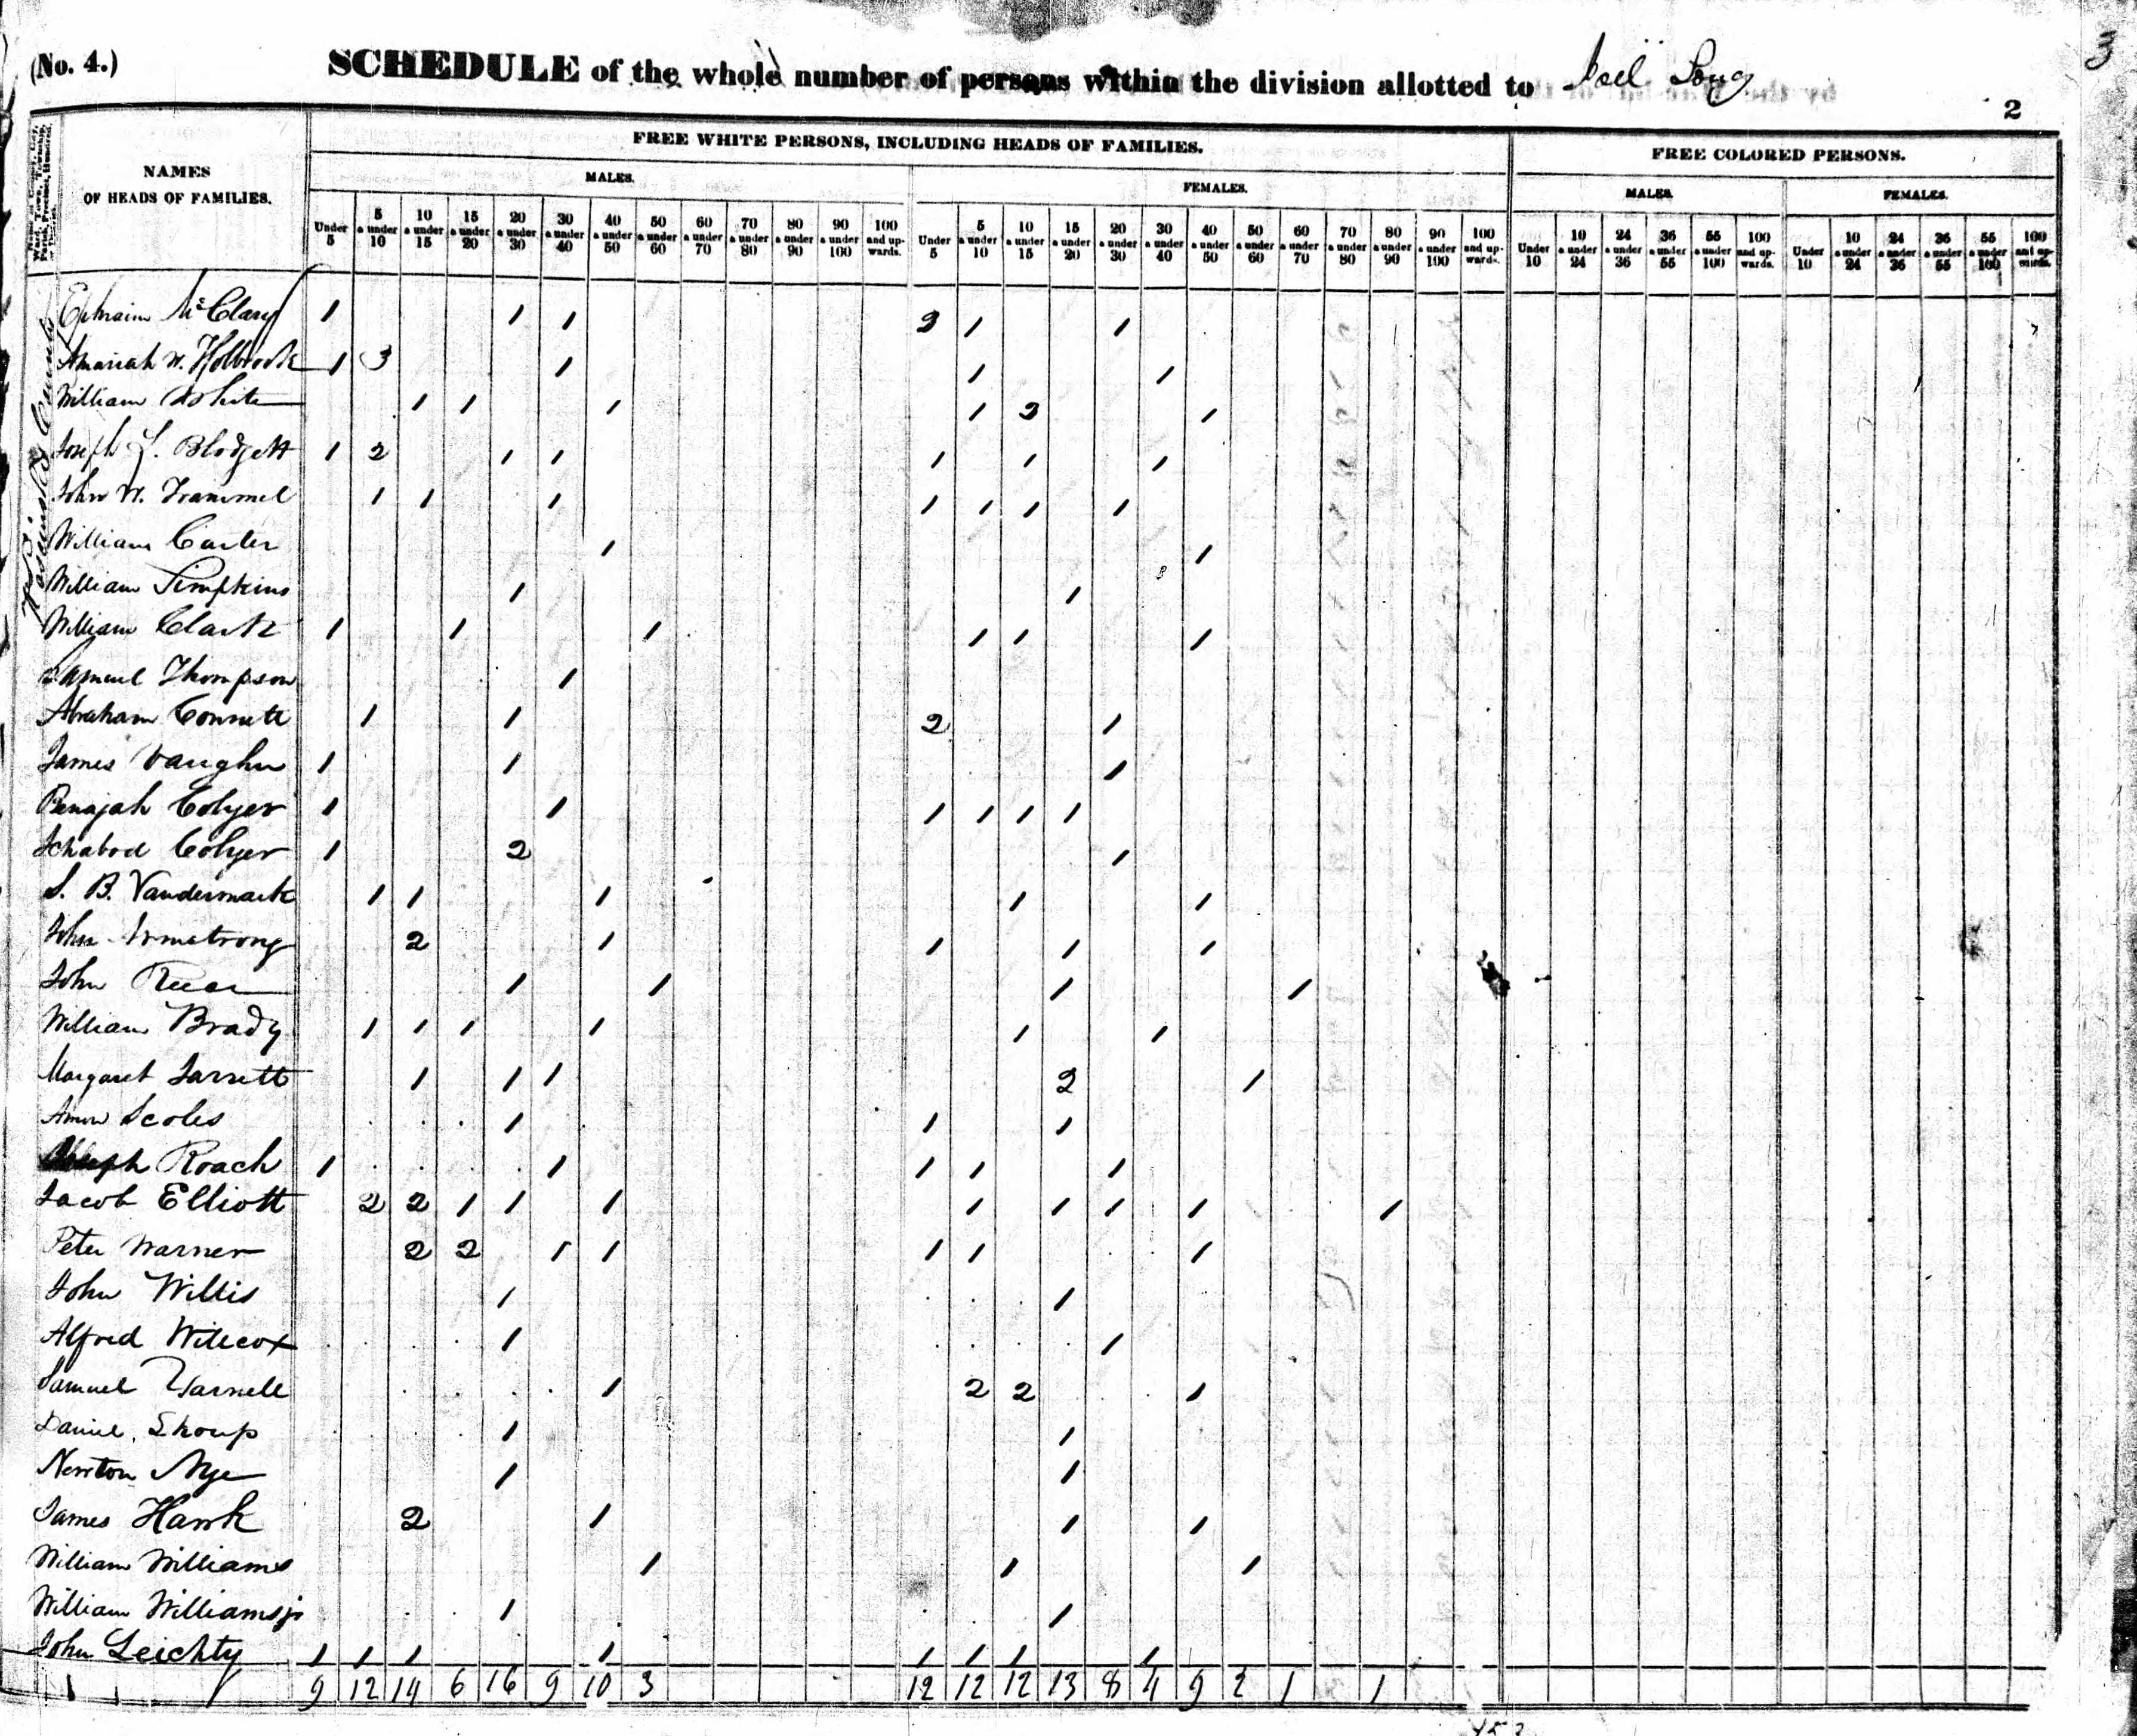 (No. 4.) SCHEDULE of the whole number of persons within the division allotted to Joel Long
3
2
NAMES OF HEADS OF FAMILIES.
FREE WHITE PERSONS, INCLUDING HEADS OF FAMILIES.
FREE COLORED PERSONS.
MALES. FEMALES. MALES. FEMALES.
Under 5 | 5 & under 10 | 10 & under 15 | 15 & under 20 | 20 & under 30 | 30 & under 40 | 40 & under 50 | 50 & under 60 | 60 & under 70 | 70 & under 80 | 80 & under 90 | 90 & under 100 | 100 and upwards. | Under 5 | 5 & under 10 | 10 & under 15 | 15 & under 20 | 20 & under 30 | 30 & under 40 | 40 & under 50 | 50 & under 60 | 60 & under 70 | 70 & under 80 | 80 & under 90 | 90 & under 100 | 100 and upwards. | Under 10 | 10 & under 24 | 24 & under 36 | 36 & under 55 | 55 & under 100 | 100 and upwards. | Under 10 | 10 & under 24 | 24 & under 36 | 36 & under 55 | 55 & under 100 | 100 and upwards.
Ephraim McClary 1 1 1 2 1 1
Amariah W. Holbrook 1 3 1 1 1
William White 1 1 1 1 2 1
Joseph S. Blodgett 1 2 1 1 1 1 1
John W. Trammel 1 1 1 1 1 1 1
William Carter 1 1
William Simpkins 1 1
William Clark 1 1 1 1 1 1
Samuel Thompson 1
Abraham Connett 1 1 2 1
James Vaughn 1 1 1
Benajah Colyer 1 1 1 1 1 1
Ichabod Colyer 1 2 1
S. B. Vandermark 1 1 1 1 1
John Armstrong 2 1 1 1 1
John 1 1 1 1
William Brady 1 1 1 1 1 1
Margaret Jarrett 1 1 1 2 1
Amon Scoles 1 1 1
Joseph Roach 1 1 1 1 1
Jacob Elliott 2 2 1 1 1 1 1 1 1 1
Peter Warner 2 2 1 1 1 1 1
John Willis 1 1
Alfred Willcox 1 1
Samuel Yarnell 1 2 2 1
Daniel Shoup 1 1
Newton Nye 1 1
James Hawk 2 1 1 1
William Williams 1 1 1
William Williams jr 1 1
John Leichty 1 1 1 1 1 1 1 1
9 12 14 6 16 9 10 3 12 12 12 13 8 4 9 2 1 1